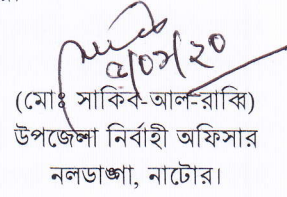 (মোঃ সাকিব-আল-রাব্বি)
উপজেলা নির্বাহী অফিসার
নলডাঙ্গা, নাটোর।